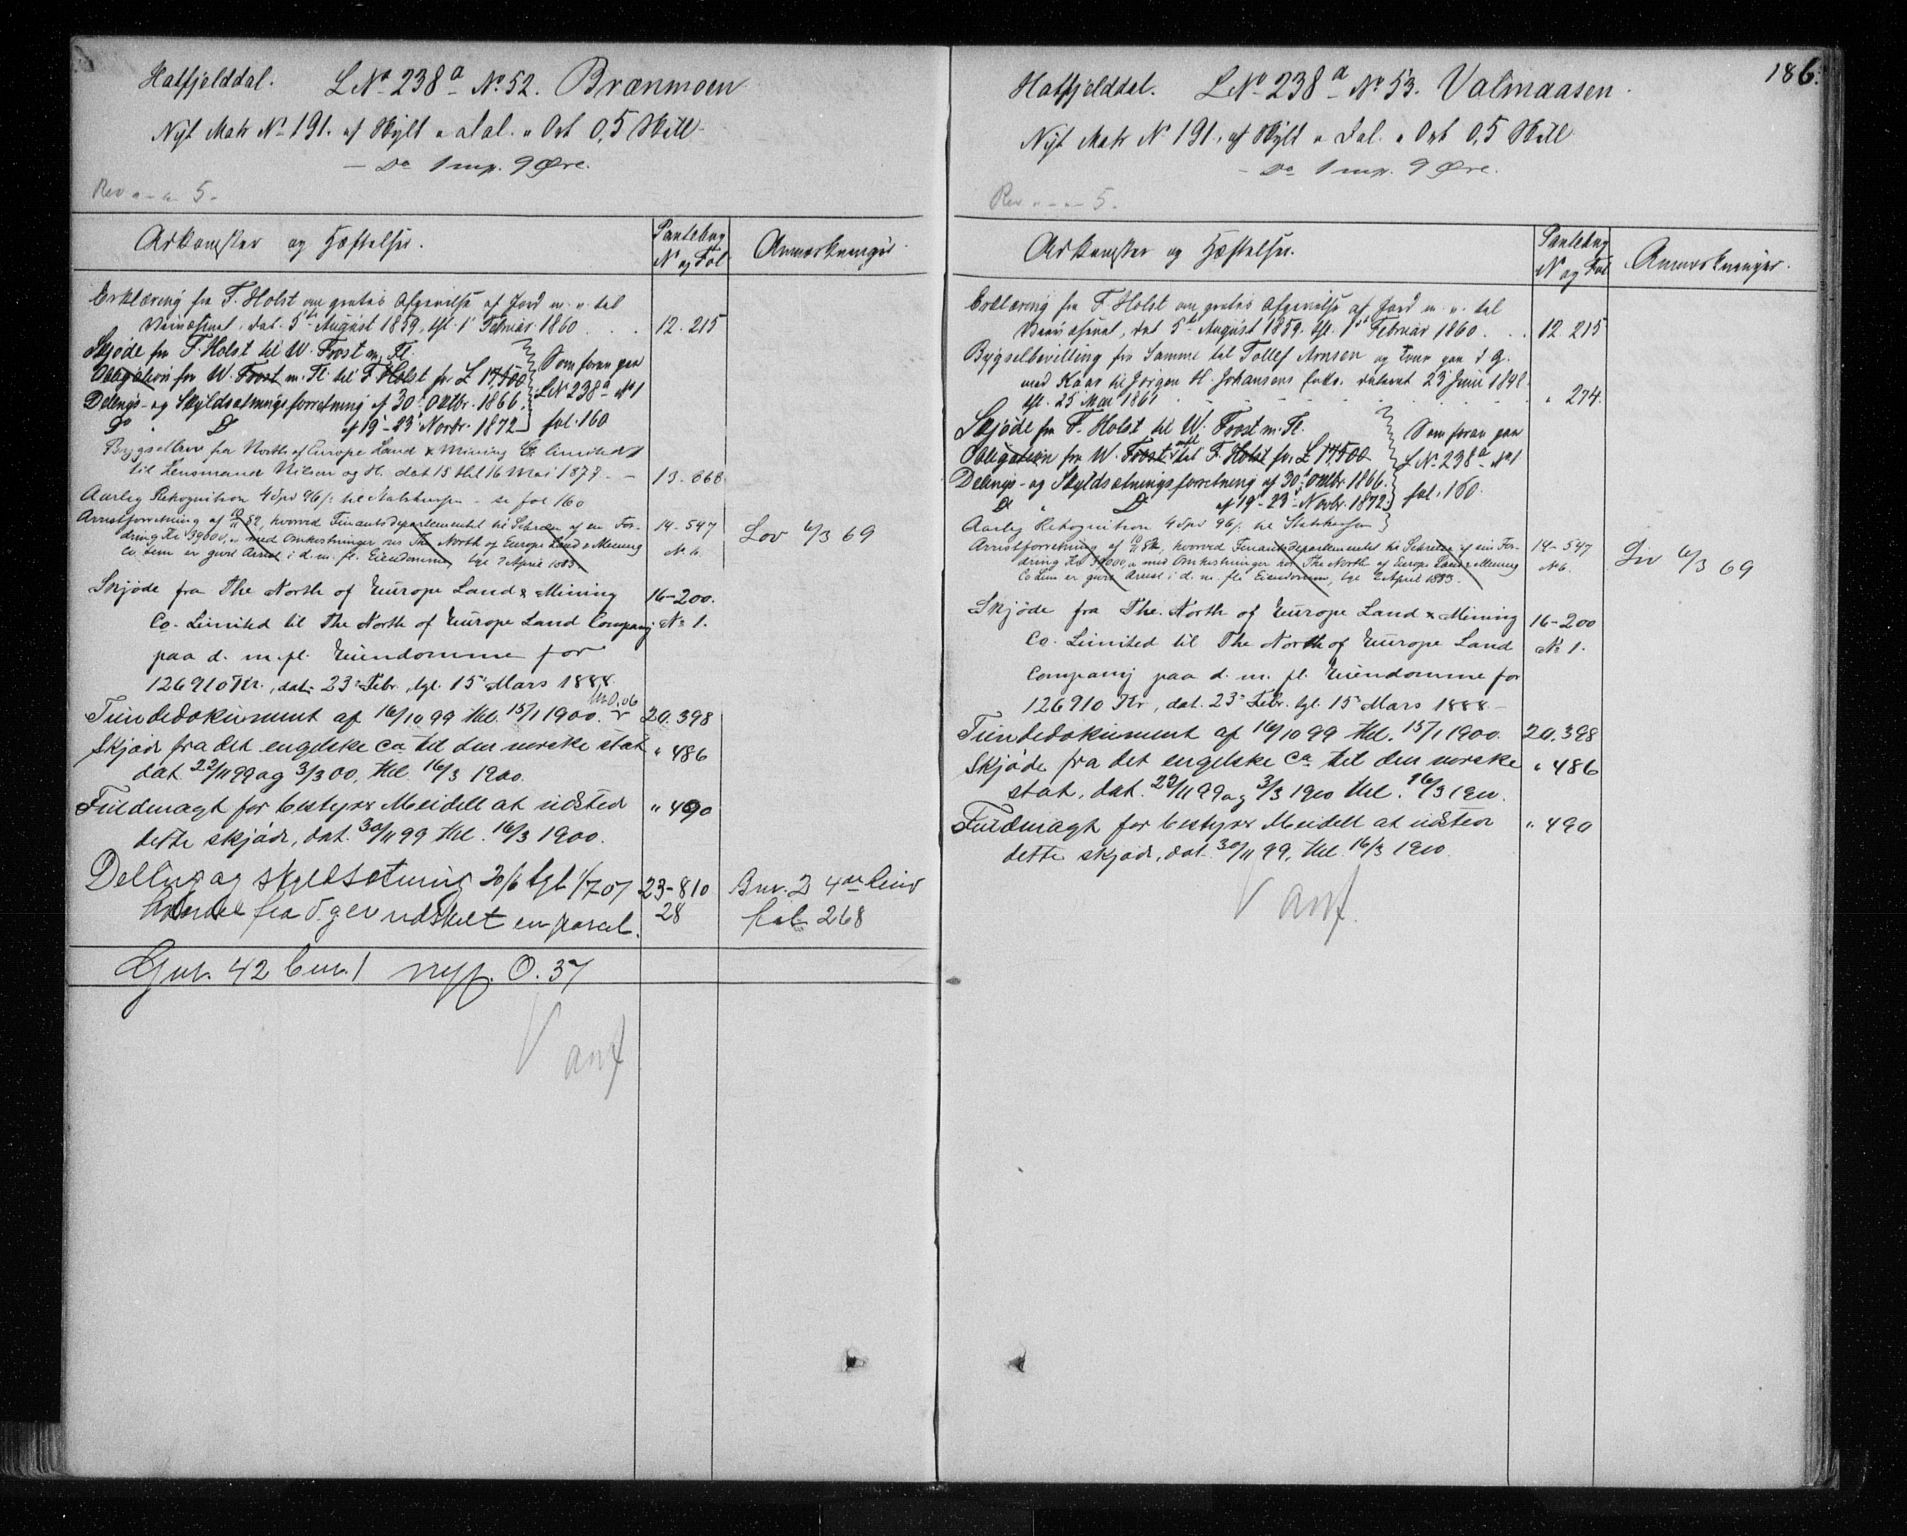 Hatfjelddal. L No 238a No 52. Brænmoen
Nyt Matr No 191. af Skyld " Dal. " Ort 0,5 Skill
- Do 1 mp. 9 Øre.
Rev " - " - 5 -
Adkomster og Hæftelser.
Pantebog
N og Fol
Anmærkninger
Erklæring fra F. Holst om gratis Afgivelse af Jord m. v. til
Veivæsenet, dat. 5te August 1859, tgl. 1 Februar 1860 . . . 12. 215
Skjøde fra F. Holst til W. Frost m. Fl.
Obligation fra W. Frost m. Fl til F Holst for £ 17,500
Som foran paa
L No 238a No 1
fol. 160
Delings- og Skyldsætningsforretning af 30 Oktbr. 1866.
Do " D af 19-23 Novbr. 1872
Bygselbrev fra North of Europe Land & Mining Co Limited
til Lensmand Nilsen og H. dat 15 thl 16 Mai 1877. - 13. 668
Aarlig Rekognition 4 Spd 96 /: til Statskassen - se fol 160
Arrestforretning af 10/11 82, hvorved Finantsdepartementet til Sikring af en For-
dring Kr 39000, " med Omkostninger hos The North of Europe Land & Mining
Co Lim er gjort Arrest i d. m. fl. Eiendomme, tgl 7 April 1883.
14-547
No 6.
Lov 6/3 69
Skjøde fra The North of Europe Land & Mining
Co. Limited til The North of Europe Land Company
paa d. m. fl. Eiendomme for
126910 Kr., dat. 23 Febr., tgl. 15 Mars 1888.
16-200.
No 1.
Tiendedokument af 16/10 99 thl. 15/1 1900. 20. 398
Skjøde fra det engelske Co til den norske stat
dat 22/11 99 og 3/3 00, thl. 16/3 1900.
" 486
Fuldmagt for bestyrer Meidell at udstede
dette skjøde, dat. 30/11 99 thl. 16/3 1900.
" 490
Deling og skyldsætning 20/6 tgl 1/7 07 23-810
fra d. g er udskilt en parcel. 28
Bnr. 2
fol 268
Gnr. 42 bnr. 1 0. 37
V anf
186.
Hatfjelddal. L No 238a No 53. Valmaasen.
Nyt Matr N 191. af Skyld " Dal. " Ort 0,5 Skill
- Do 1 mp. 9 Øre.
Rev " - " - 5.
Adkomster og Hæftelser.
Pantebog
N og Fol
Anmærkninger.
Erklæring fra F Holst om gratis Afgivelse af Jord m. v. til
Veivæsenet, dat 5te August 1859. tgl. 1 Februar 1860. . . 12. 215
Bygselbevilling fra Samme til Tollef Arnsen og Kone paa d g.
med Kaar til Jørgen H. Johansens Enke. dateret 23 Juni 1848.
tgl. 25 Mai 1861 . . . " 274.
Skjøde fra F. Holst til W. Frost m. Fl.
Obligation fra W. Frost m Fl til F. Holst for £ 17,500
Som foran paa
L No 238a No 1
fol. 160.
Delings- og Skyldsætningsforretning af 30 Oktbr. 1866.
D " D af 19-23 Novbr. 1872
Aarlig Rekognition 4 Spd 96 /: til Statskassen
Arrestforretning af 10/11 82, hvorved Finantsdepartementet til Sikring af en For-
dring Kr 39000, " med Omkostninger hos The North of Europe Land & Mining
Co Lim er gjort Arrest i d. m. fl. Eiendomme, tgl 7 April 1883.
14-547
No 6.
Lov 6/3 69
Skjøde fra The North of Europe Land & Mining
Co. Limited til The North of Europe Land
Company paa d. m. fl. Eiendomme for
126910 Kr, dat. 23 Febr. tgl. 15 Mars 1888 -
16-200
No 1.
Tiendedokument af 16/10 99 thl. 15/1 1900. 20. 398
Skjøde fra det engelske Co til den norske
stat, dat. 22/11 99 og 3/3 1900 thl. 16/3 1900.
" 486
Fuldmagt for bestyrer Meidell at udstede
dette skjøde, dat. 30/11 99, thl. 16/3 1900.
" 490
V anf.